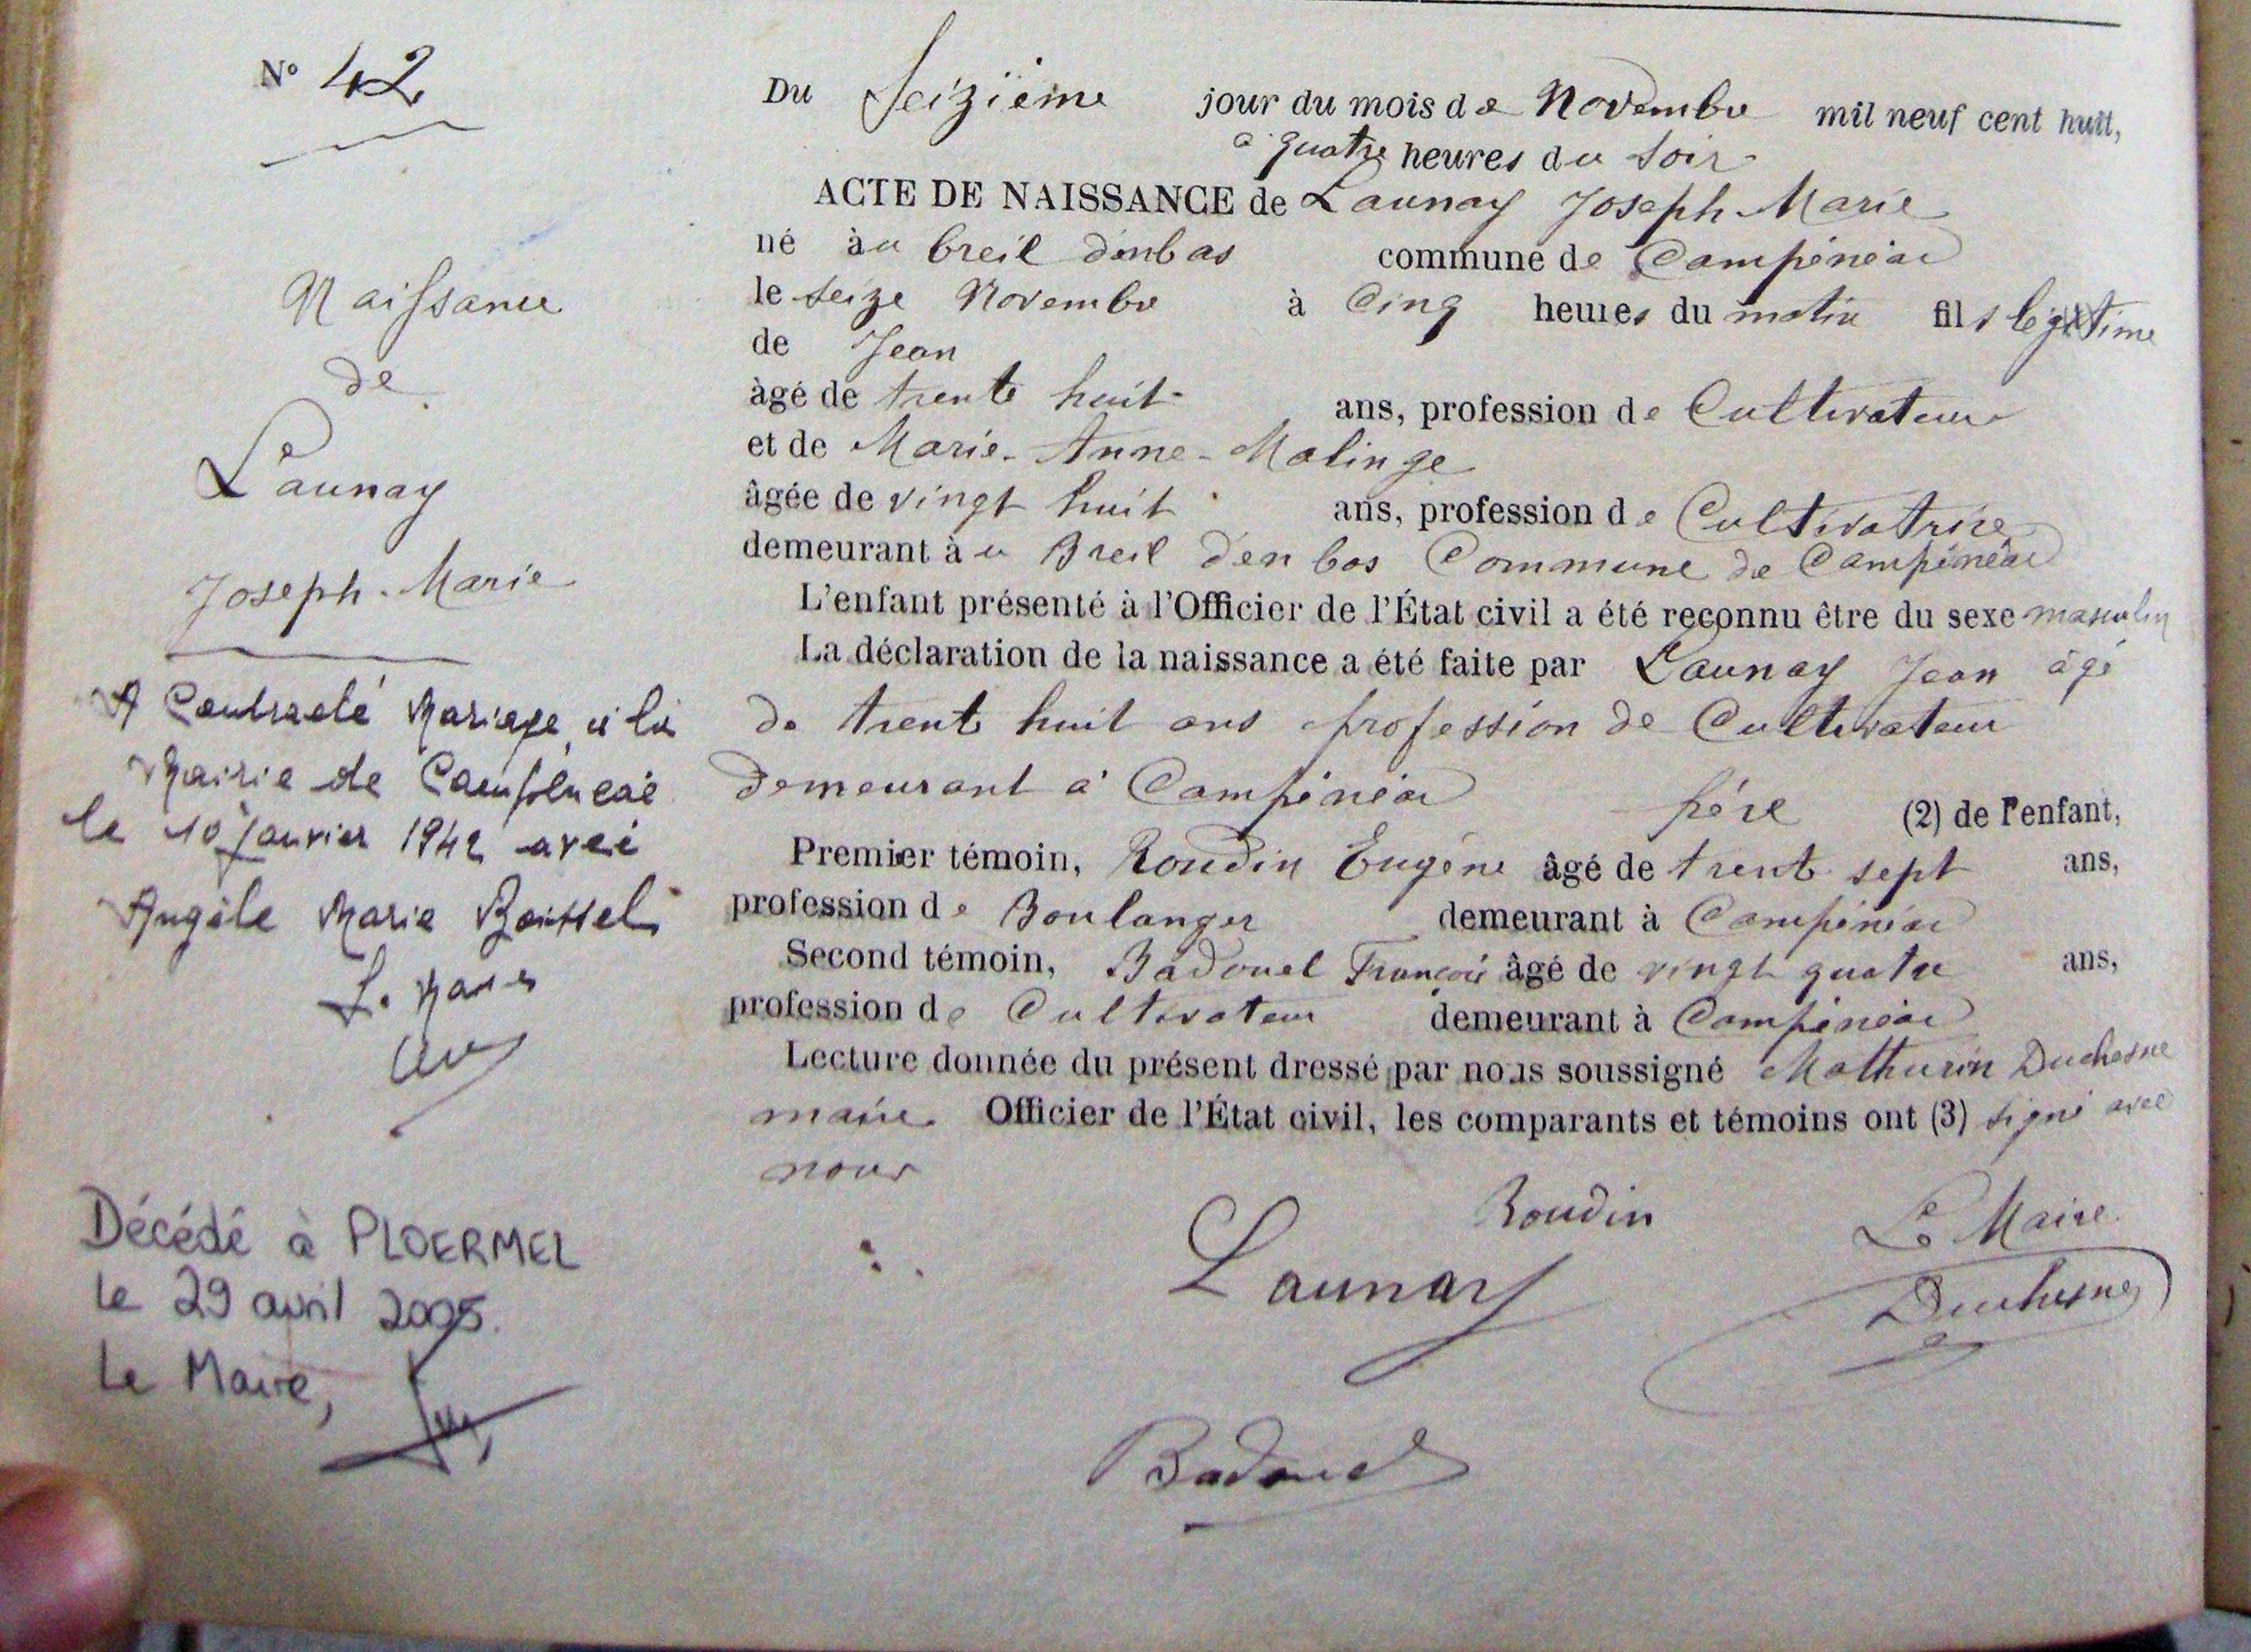 N° 42
Naissance
de
Launay
Joseph-Marie
A Contracté Mariage à la
Mairie de Campénéac
le 10 Janvier 1942 avec
Angèle Marie Boissel
Le Maire
Décédé à PLOERMEL
le 29 avril 2005.
Le Maire,
Du Seizième jour du mois de Novembre mil neuf cent huit,
a quatre heures du soir
ACTE DE NAISSANCE de Launay Joseph-Marie
né au breil d'enbas commune de Campénéac
le seize Novembre à Cinq heures du matin fils légitime
de Jean
âgé de trente huit ans, profession de Cultivateur
et de Marie-Anne-Malinge
âgée de vingt huit ans, profession de Cultivatrice
demeurant au Breil d'en bas Commune de Campénéac
L'enfant présenté à l'Officier de l'État civil a été reconnu être du sexe masculin
La déclaration de la naissance a été faite par Launay Jean âgé
de trente huit ans profession de Cultivateur
demeurant à Campénéac père (2) de l'enfant,
Premier témoin, Roudin Eugène âgé de trente sept ans,
profession de Boulanger demeurant à Campénéac
Second témoin, Badouel François âgé de vingt quatre ans,
profession de Cultivateur demeurant à Campénéac
Lecture donnée du présent dressé par nous soussigné Mathurin Duchesne
maire Officier de l'État civil, les comparants et témoins ont (3) signé avec
nous
Roudin Le Maire
Launay Duchesne
Badouel